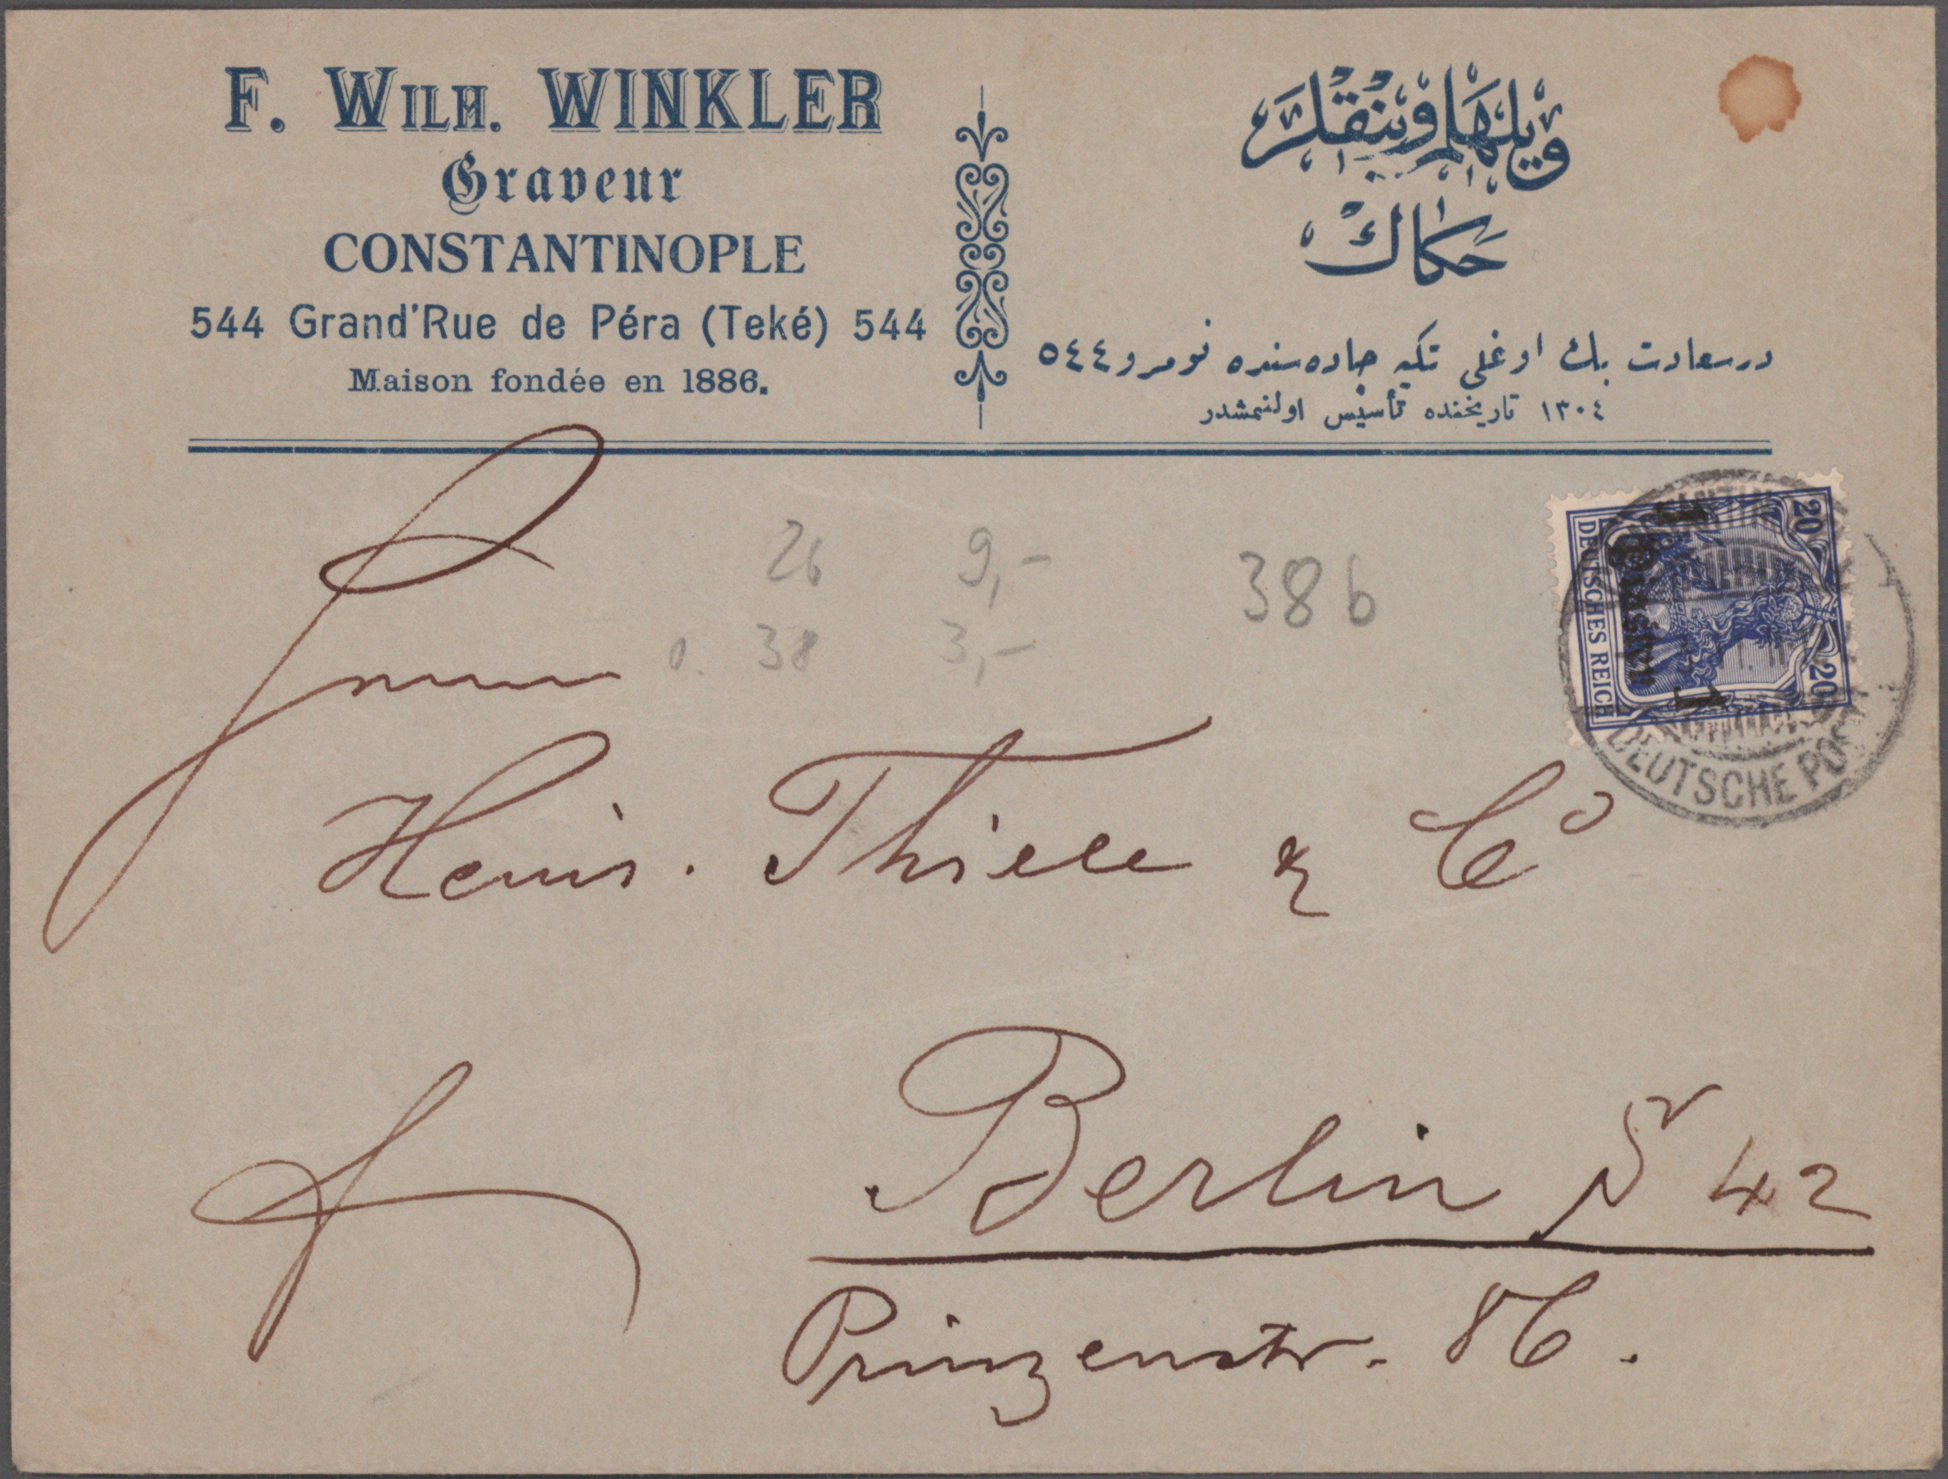 F. WILH. WINKLER
Graveur
CONSTANTINOPLE
544 Grand'Rue de Péra (Teké) 544
Maison fondée en 1886.
ويلهلم وينقلر
حكاك
درسعادت بك اوغلى تكيه جاده‌سنده نومرو ٥٤٤
١٣٠٤ تاريخنده تأسيس اولنمشدر
26 9,-
o. 38 3,-
38 b
20 20
DEUTSCHES REICH
1 Piaster 1
DEUTSCHE POST
Heinr. Thiele & Co
Berlin S 42
Prinzenstr. 86.